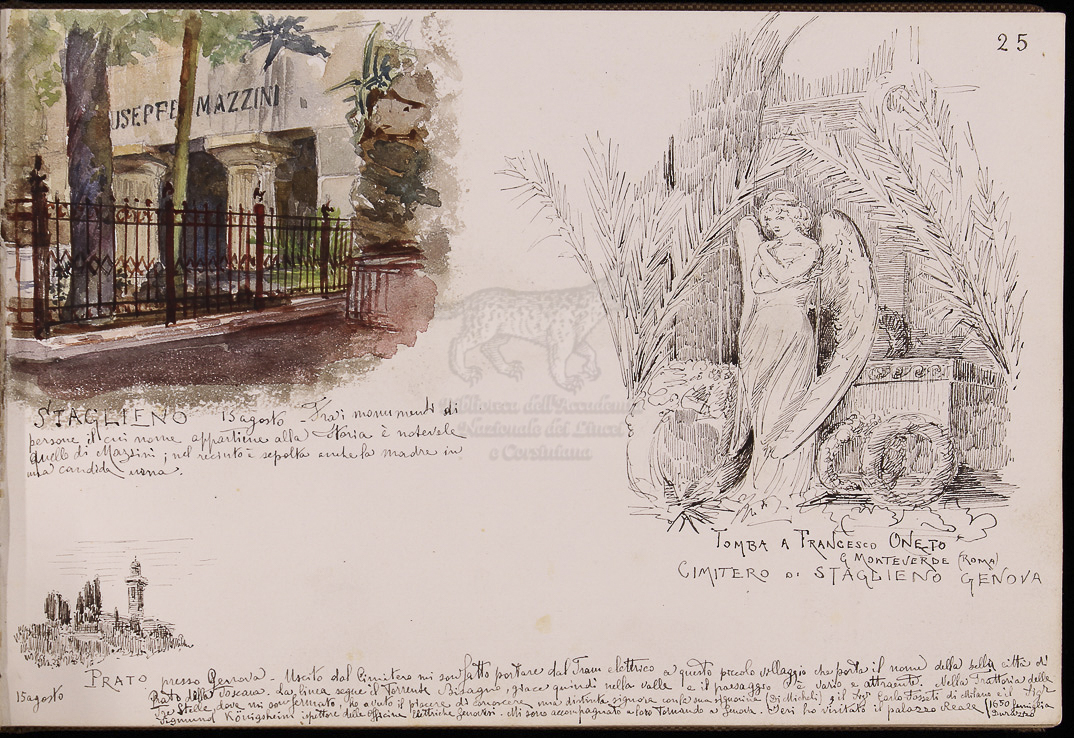 25
USEPPE MAZZINI
STAGLIENO 15 agosto - Fra i monumenti di
persone il cui nome appartiene alla Storia è notevole
quello di Mazzini; nel recinto è sepolta anche la madre in
una candida urna.
Biblioteca dell'Accademia
Nazionale dei Lincei
e Corsiniana
TOMBA A FRANCESCO ONETO
G MONTEVERDE (ROMA)
CIMITERO DI STAGLIENO GENOVA
PRATO presso Genova - Uscito dal Cimitero mi son fatto portare dal Tram elettrico a questo piccolo villaggio che porta il nome della bella città di
15 agosto
Prato della Toscana. La linea segue il Torrente Bisagno, giace quindi nella valle e il paesaggio è vario e attraente. Nella Trattoria delle
Tre Stelle dove mi son fermato, ho avuto il piacere di conoscere una distinta signora con la sua signorina (Di Micheli) e il Sigr Carlo Fossati di Milano e il Sigr
Sigmund Königsheim ispettore delle Officine Elettriche Genovesi. Mi sono accompagnato a loro tornando a Genova. Ieri ho visitato il palazzo Reale (1650 famiglia
Durazzo